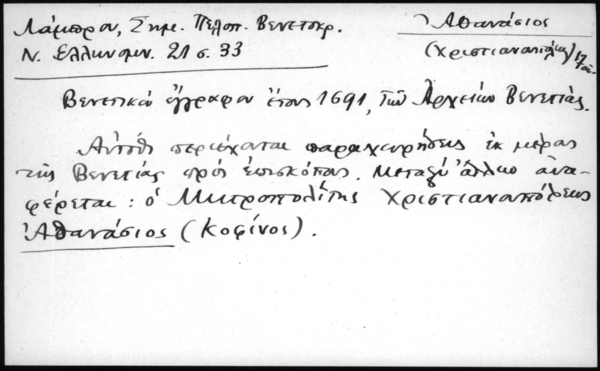 Λάμπρου, Σημ. Πελοπ. Βενετοκρ.
Ν. Ελληνομν. 21 σ. 33
Ἀθανάσιος
(Χριστιανουπόλεως) 17 αἰ.
Βενετικὸν ἔγγραφον ἔτους 1691, τῶν Ἀρχείων Βενετίας.
Αὐτόθι περιέχονται παραχωρήσεις ἐκ μέρους
τῆς Βενετίας πρὸς ἐπισκόπους. Μεταξὺ ἄλλων ἀνα-
φέρεται: ὁ Μητροπολίτης Χριστιανουπόλεως
Ἀθανάσιος (Κοφίνος).